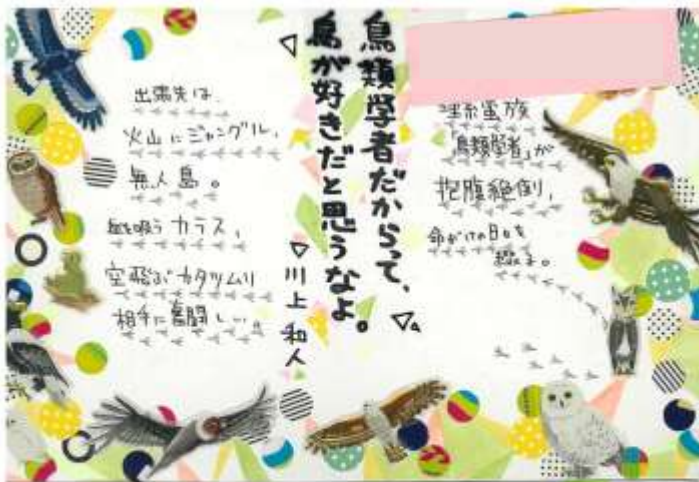 鳥類学者だからって、
鳥が好きだと思うなよ。
川上和人
理系蛮族
「鳥類学者」が
抱腹絶倒、
命がけの日々を
綴る。
出張先は、
火山にジャングル、
無人島。
血を吸うカラス、
空飛ぶカタツムリ
相手に奮闘し…。